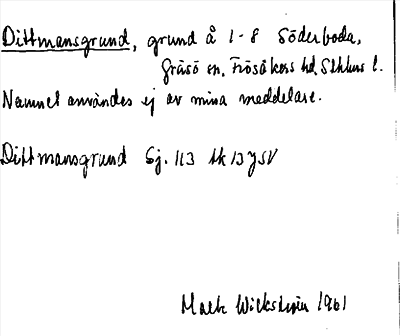 Dittmansgrund, grund å 1-8 Söderboda,
Gräsö sn, Frösåkers hd, Sthlms l.
Namnet användes ej av mina meddelare.
Dittmansgrund Sj. 113 bk 13 y SV
Mats 1961